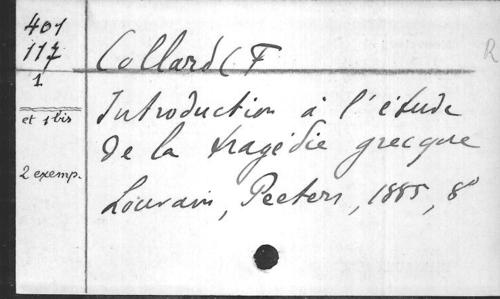 401
117
1
et 1 bis
2 exemp.
Collard (F
R
Introduction à l'étude
de la tragédie grecque
Louvain, Peeters, 1885, 8°